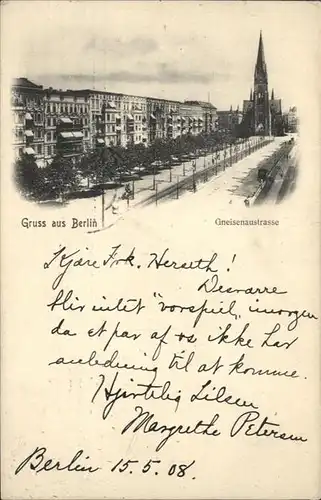 Gruss aus Berlin
Gneisenaustrasse
Kjære Frk. Herseth!
Desværre
blir intet "vorspiel" imorgen
da et par af os ikke har
anledning til at komme.
Hjertelig hilsen
Margrethe Petersen
Berlin 15.5.08.